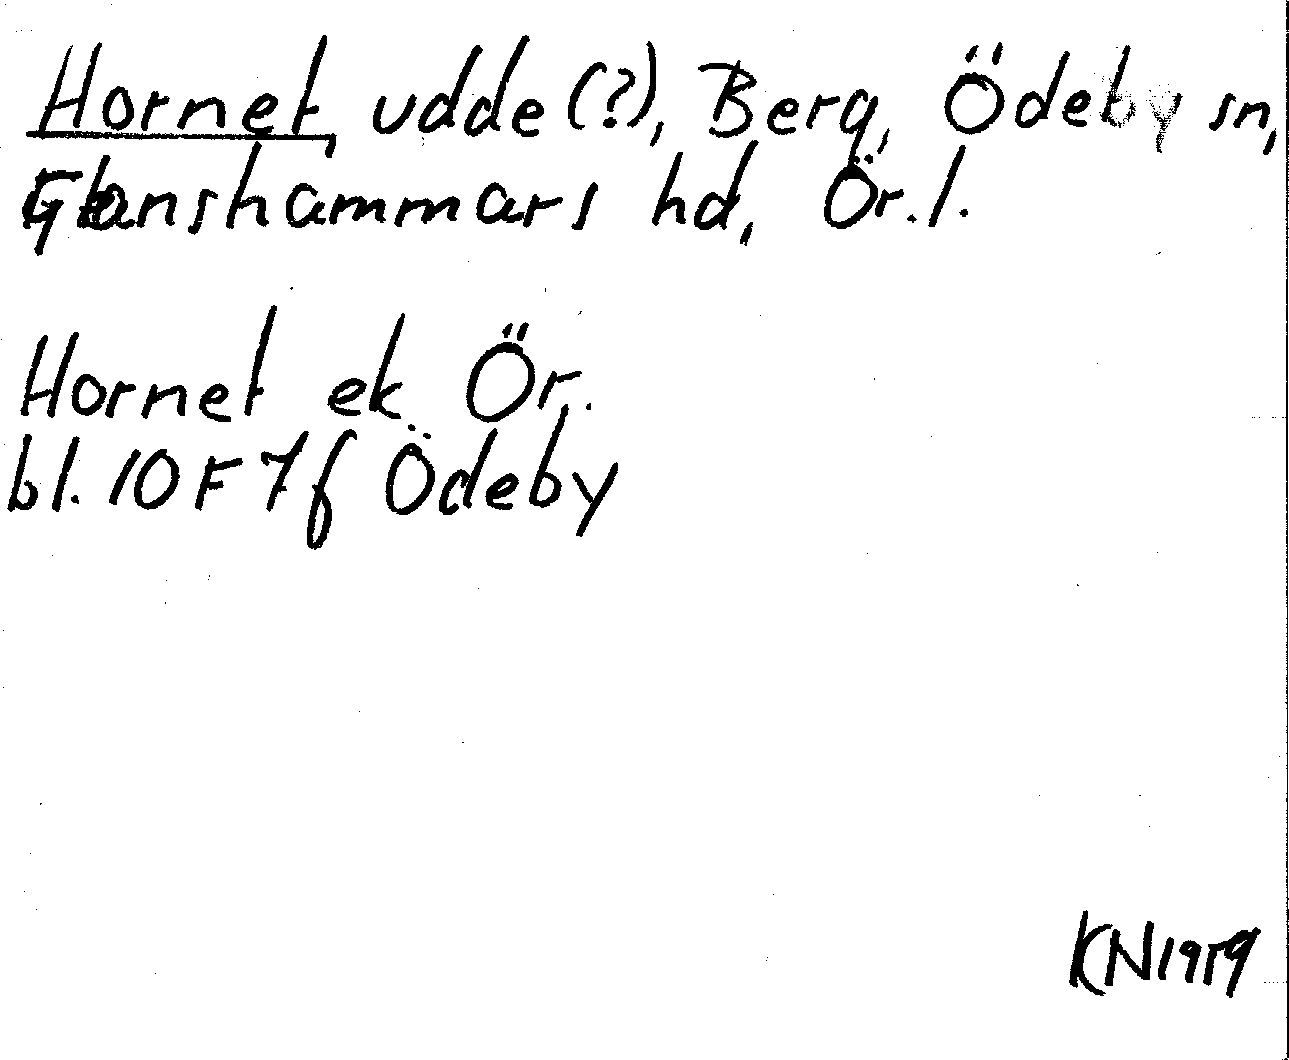 Hornet, udde (?), Berg, Ödeby sn,
Glanshammars hd, Ör. l.
Hornet ek. Ör.
bl. 10 F 7 f Ödeby
KN 1959